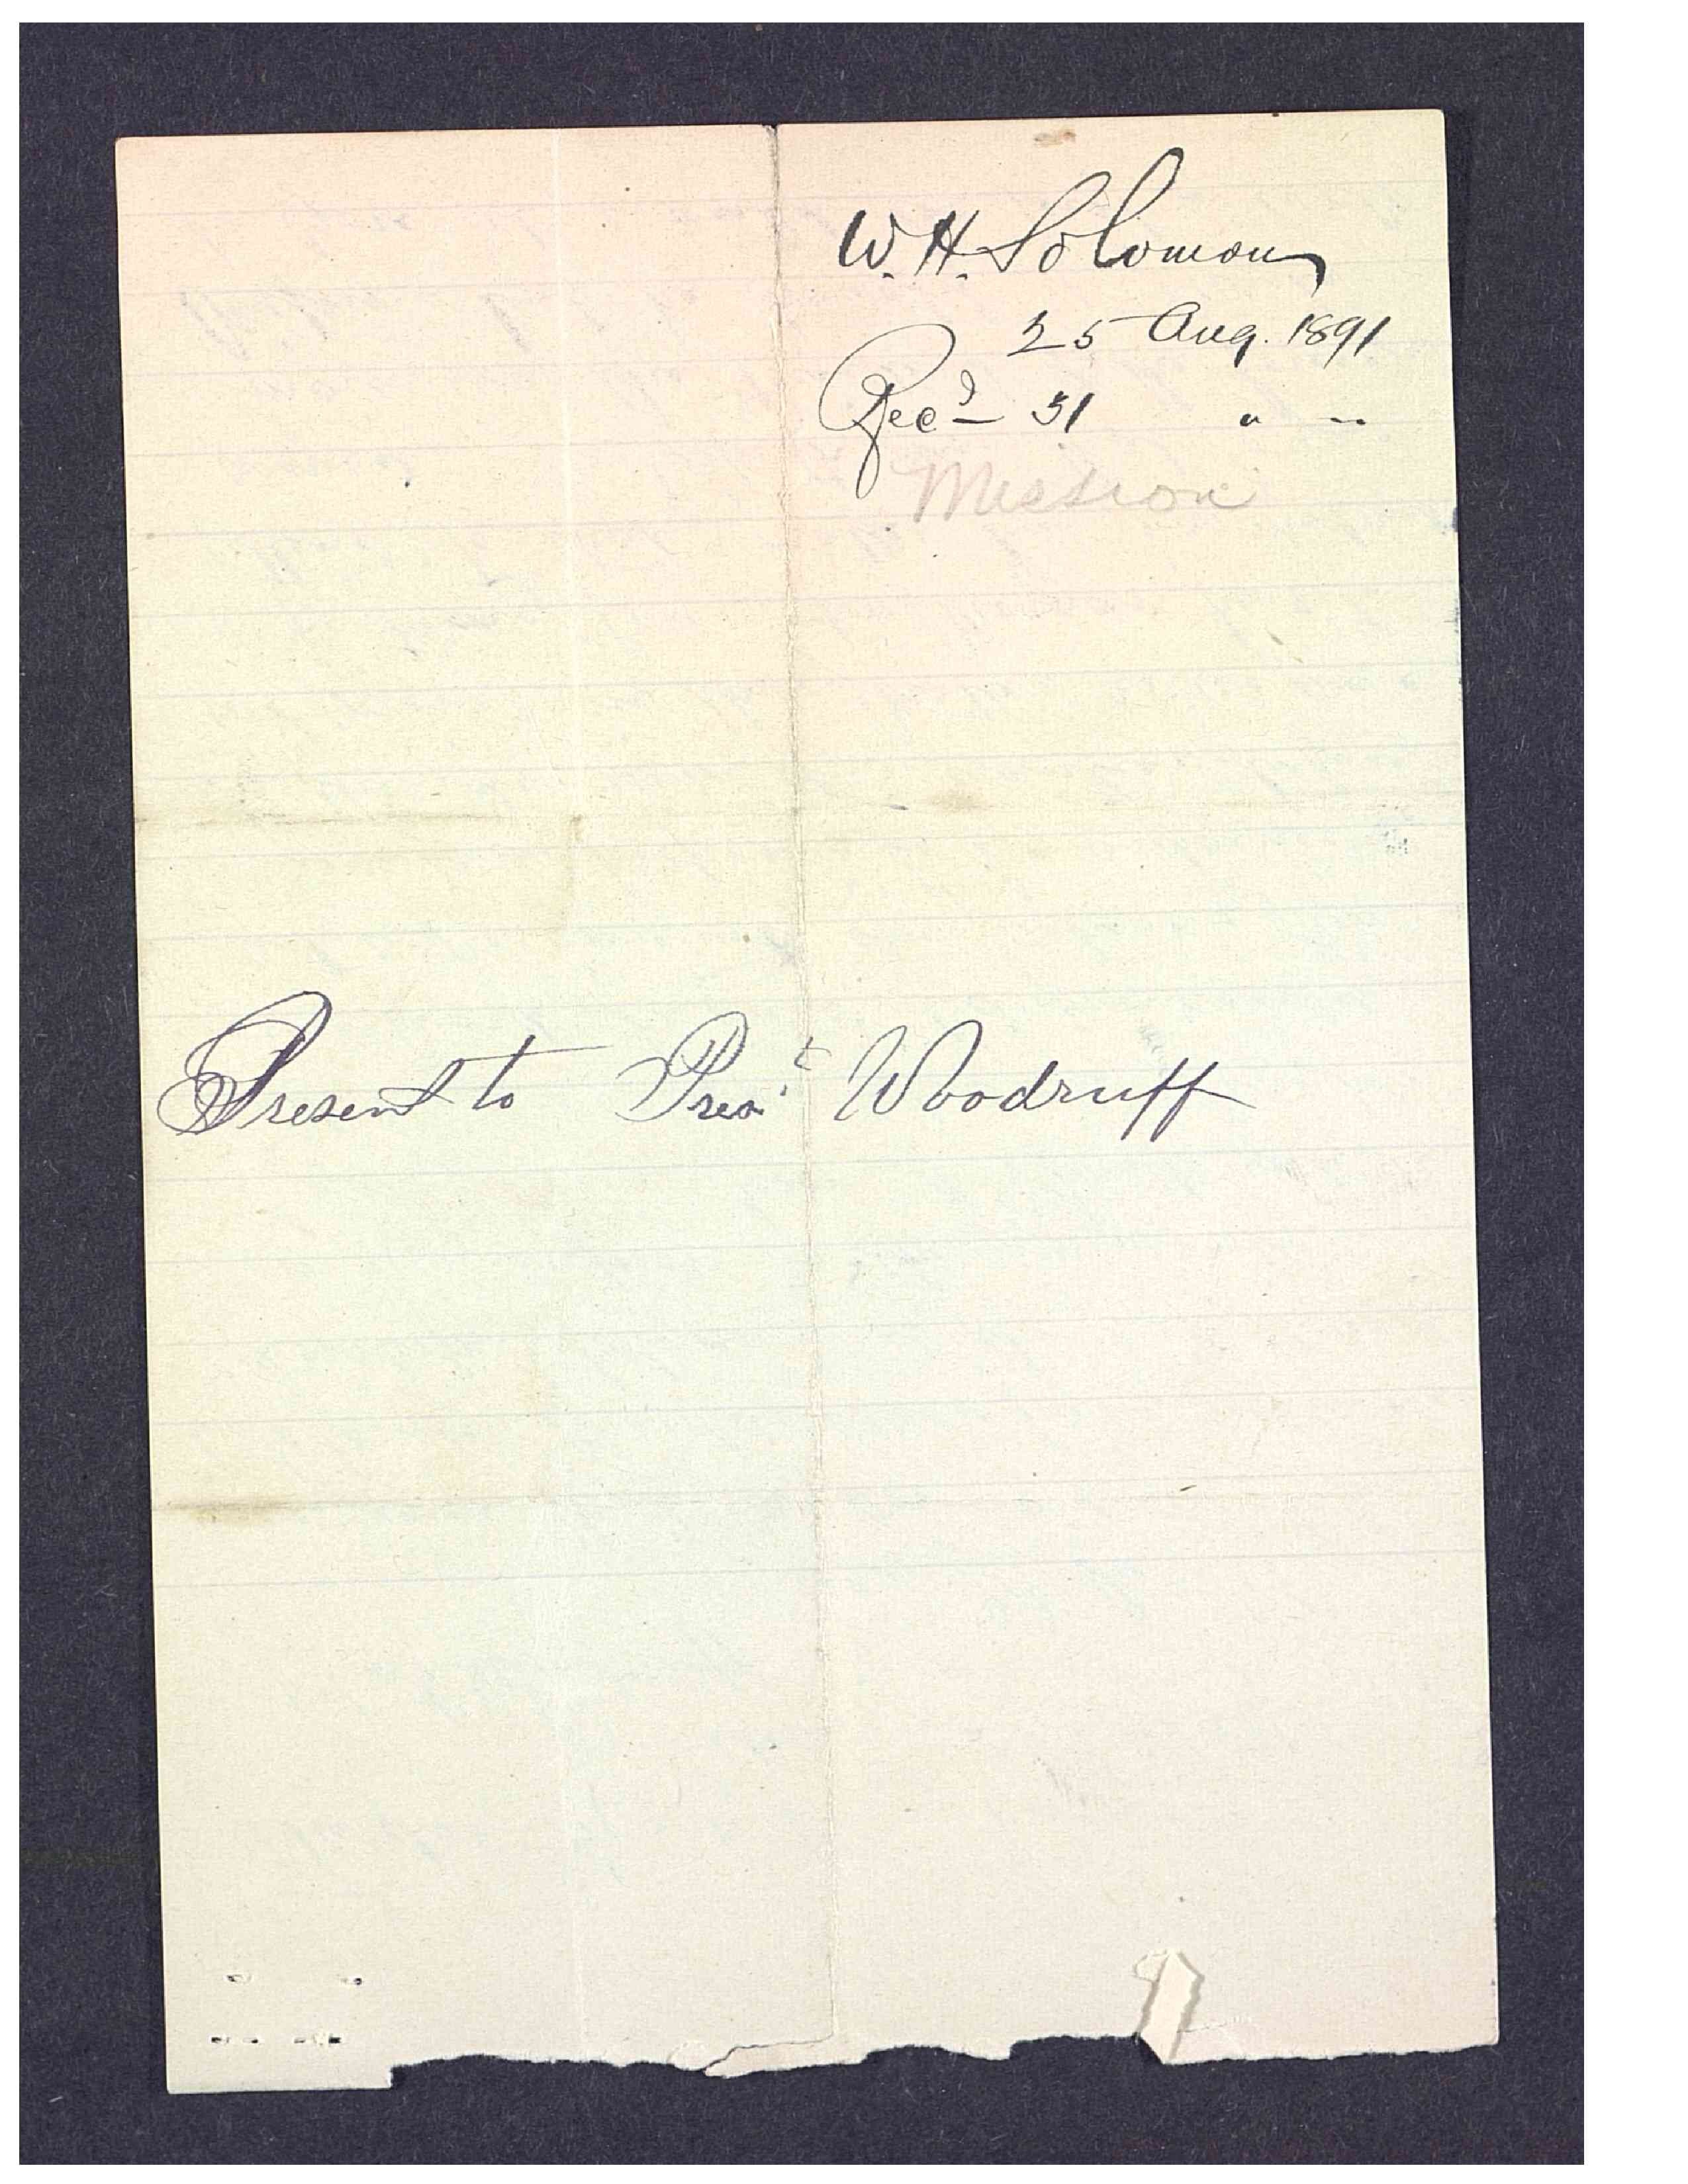 W. H. Solomon
25 Aug. 1891
Recd 31 " "
Mission
Present to Prest Woodruff